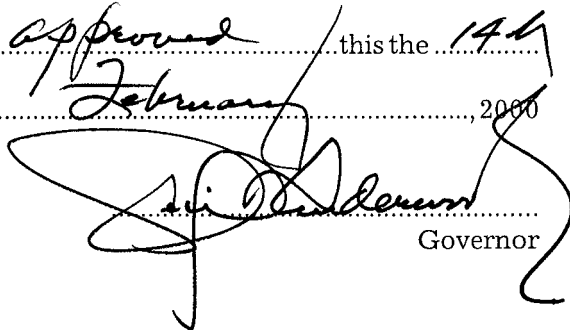 approved this the 14th
February, 2000
Governor